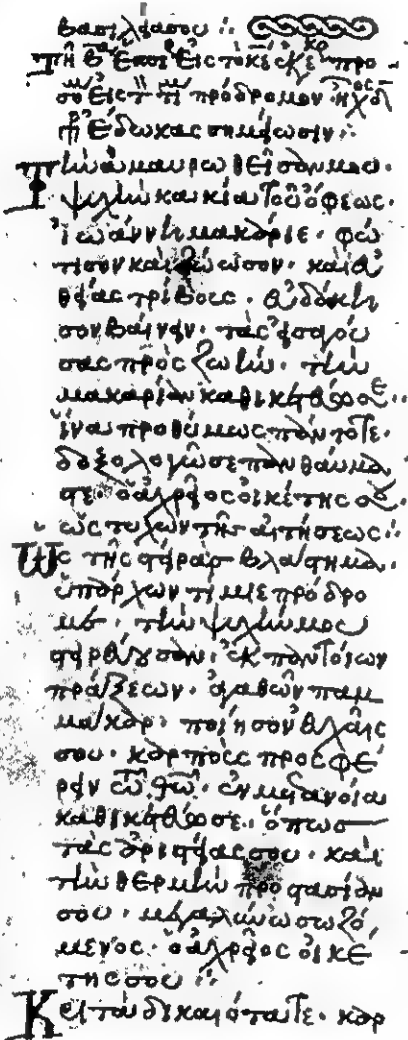 βασιλεύσου ⁘
Τῇ β ἑσπέρας εἰς τὸ κύριε ἐκέκραξα
πρόδρομον ἦχος
ἔδωκας σημείωσιν
Τὴν ἀμαυρωθεῖσάν μου
ψυχὴν κακίᾳ τοῦ ὄφεως.
Ἰωάννη μακάριε. φώ
τισον καὶ σῶσον. καὶ εὐ
θείας τρίβους.
σον βαίνειν. τὰς εἰσαγού
σας πρὸς ζωήν. τὴν
μακαρίαν καθικετεύω σε ⁘
ἵνα προθύμως πάντοτε.
δοξολογῶ σε πανθαύμα
στε. ὁ ἀχρεῖος οἰκέτης σου.
ὡς τυχὼν τῆς αἰτήσεως ⁘
Ὡς τῆς στείρας βλάστημα.
ὑπάρχων τίμιε πρόδρο
με. τὴν ψυχήν μου
στειρεύουσαν. ἐκ παντοίων
πράξεων. ἀγαθῶν παμ
μάκαρ. ποίησον εὐχαῖς
σου. καρποὺς προσφέ
ρειν
καθικετεύω σε. ὅπως
τὰς
τὴν θερμὴν προστασίαν
σου. μεγαλύνω σωζό
μενος. ὁ ἀχρεῖος οἰκέ
της σου ⁘